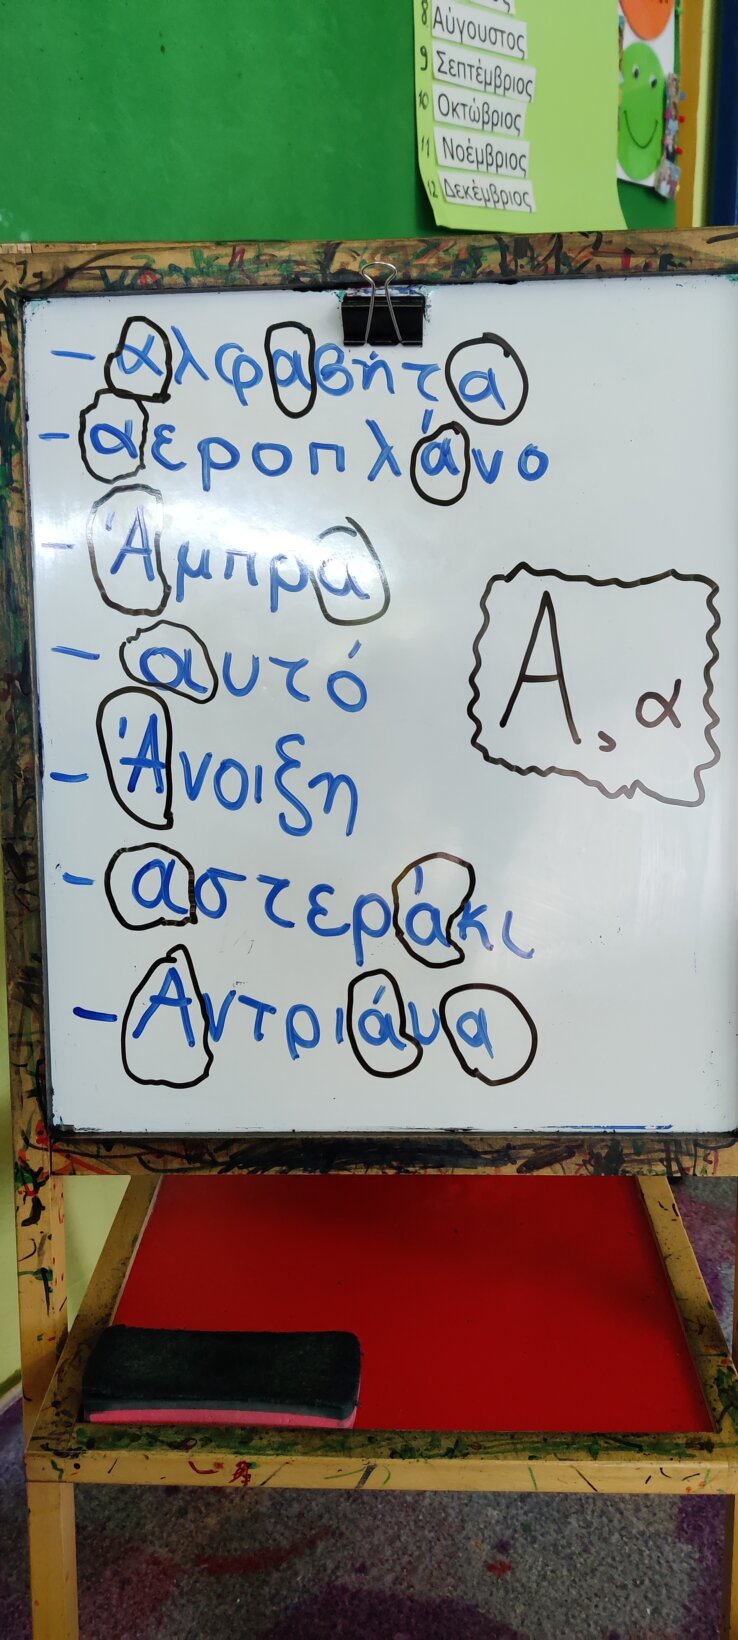 8 Αύγουστος
9 Σεπτέμβριος
10 Οκτώβριος
11 Νοέμβριος
12 Δεκέμβριος
- αλφαβήτα
- αεροπλάνο
- Άμπρα
- αυτό
- Άνοιξη
- αστεράκι
- Αντριάνα
Α, α